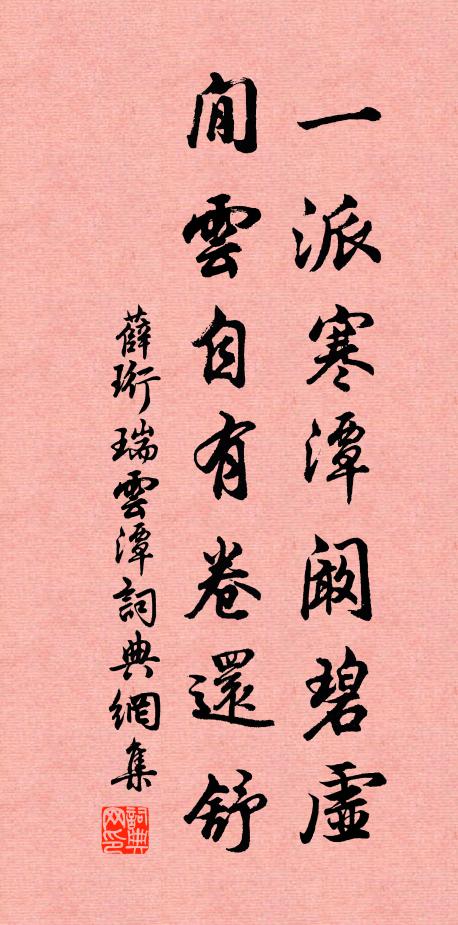 一派寒潭闞碧虛
閒雲自有卷還舒
薛珩瑞雲潭詞典網集
詞典网印